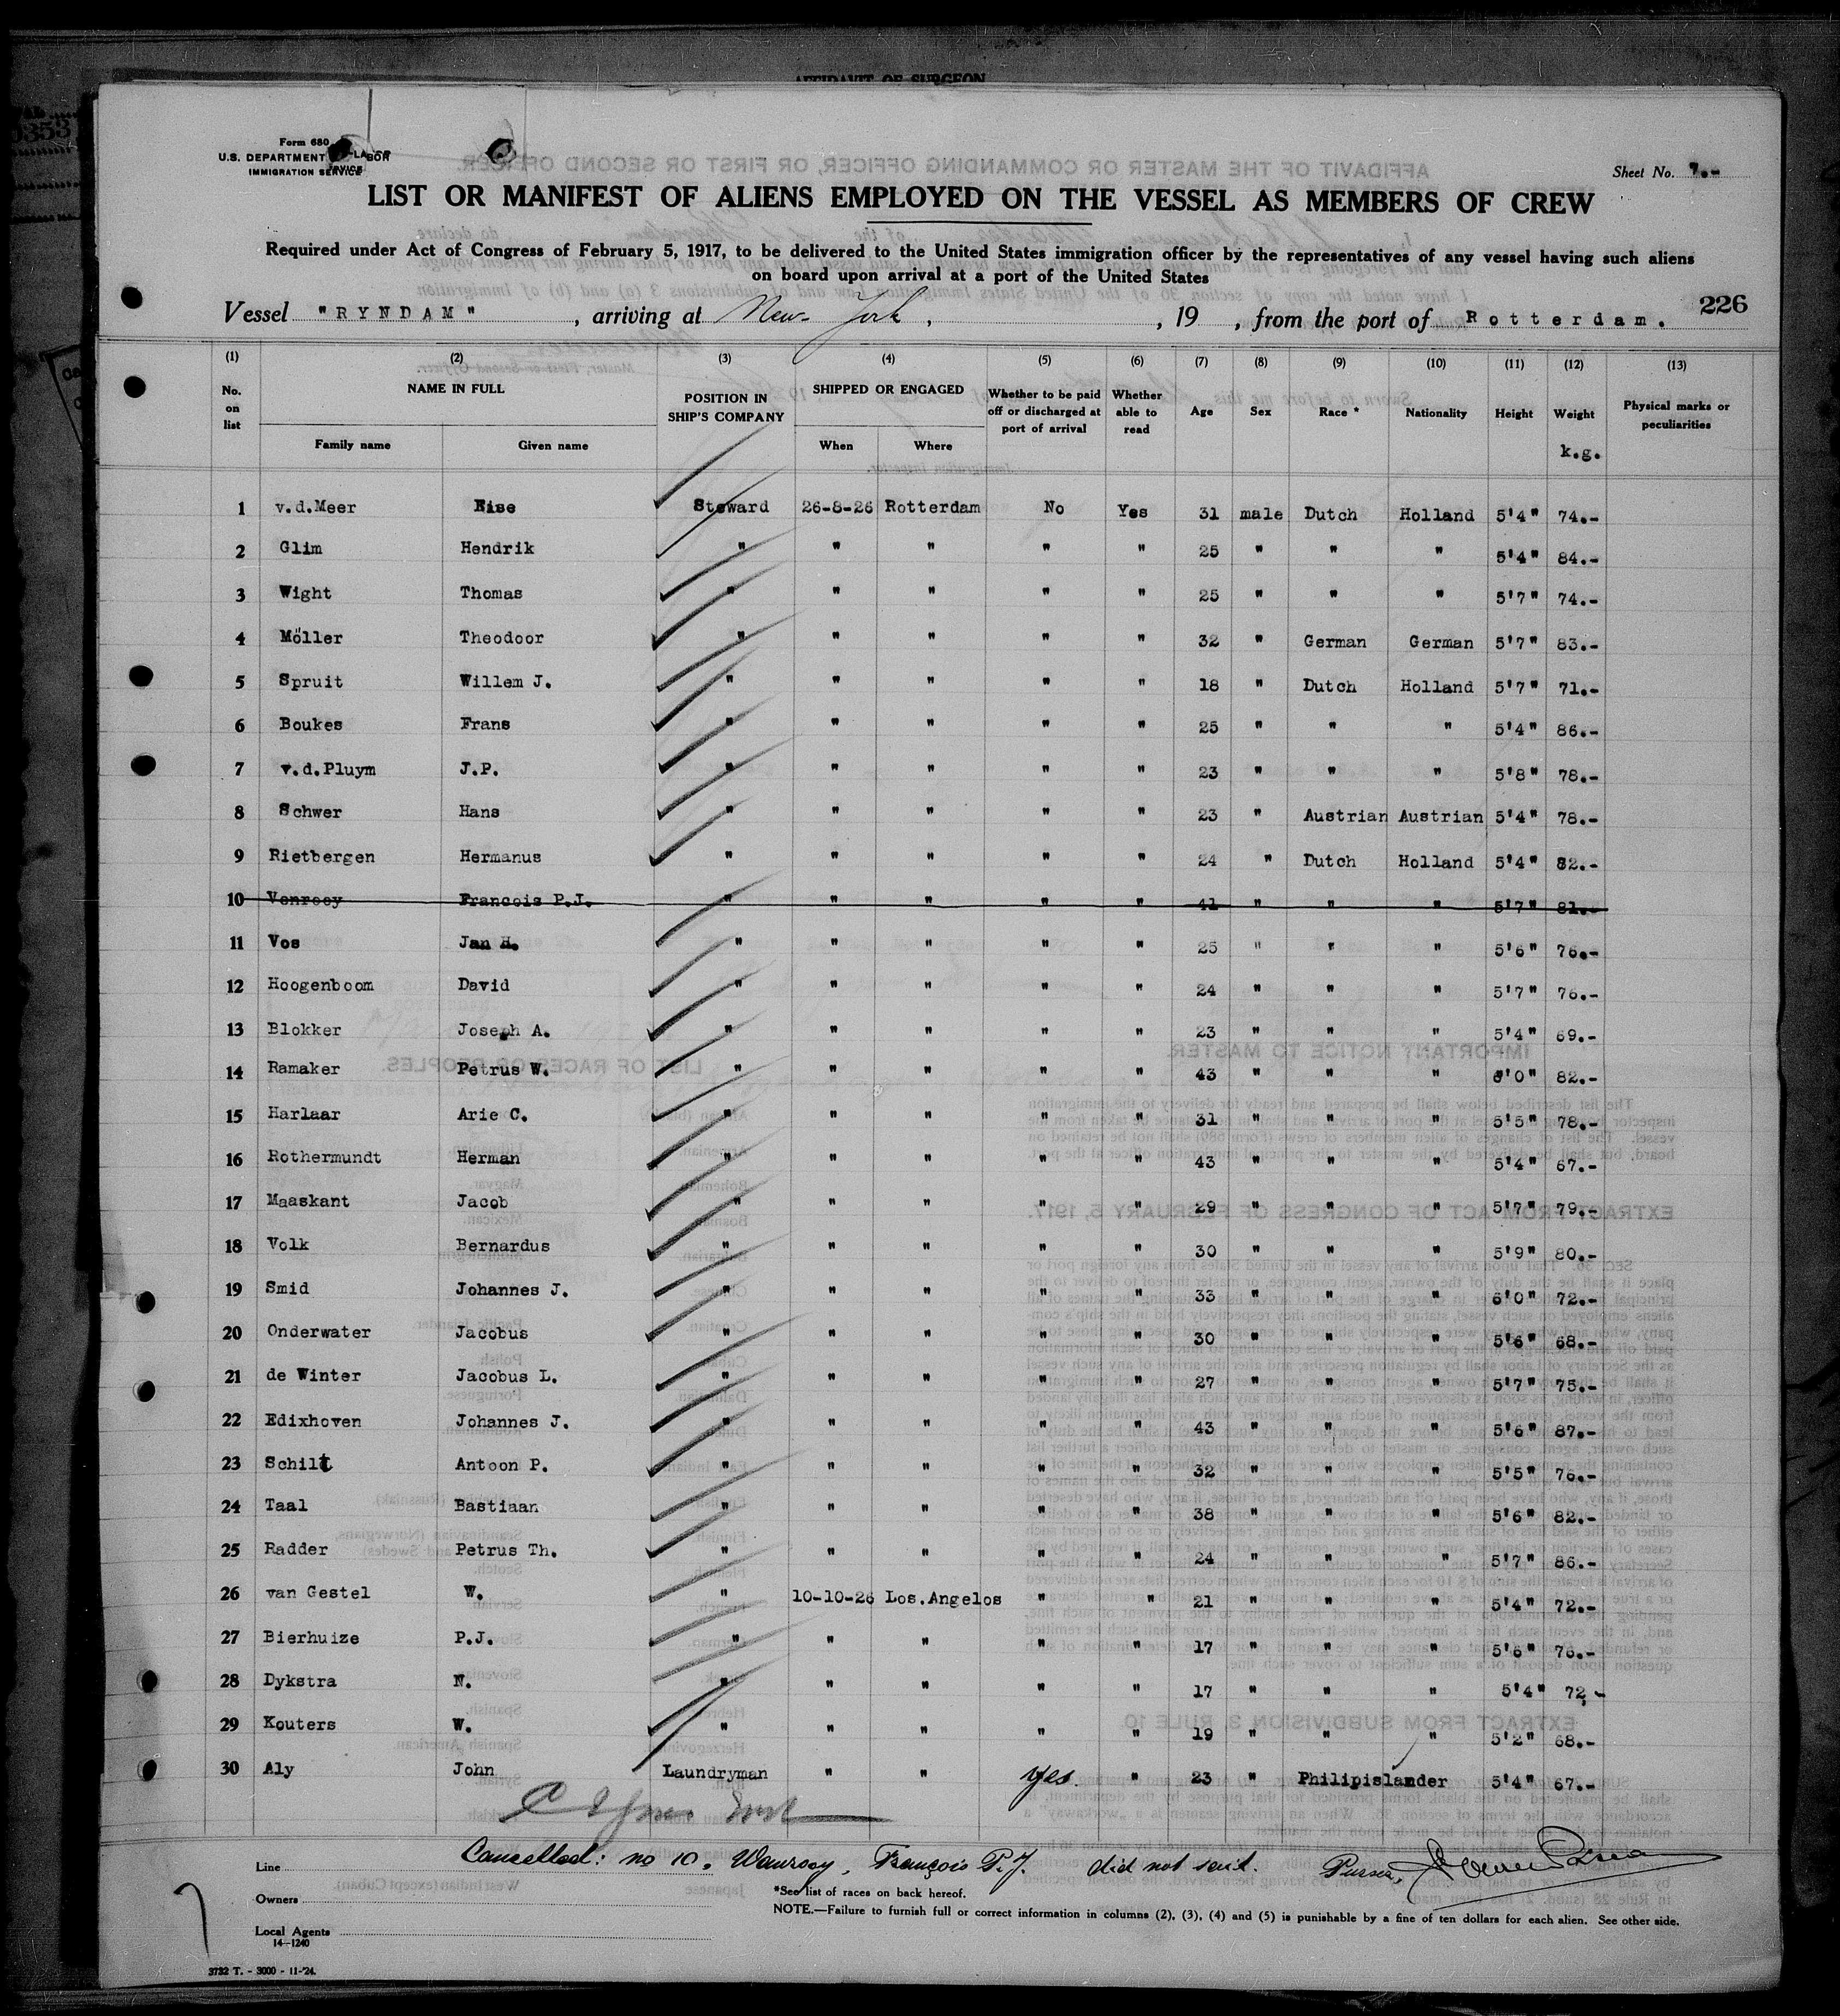 AFFIDAVIT OF SURGEON
Form 680
U.S. DEPARTMENT LABOR
IMMIGRATION SERVICE
Sheet No. 7.-
LIST OR MANIFEST OF ALIENS EMPLOYED ON THE VESSEL AS MEMBERS OF CREW
Required under Act of Congress of February 5, 1917, to be delivered to the United States immigration officer by the representatives of any vessel having such aliens
on board upon arrival at a port of the United States
226
Vessel "RYNDAM", arriving at New York, , 19 , from the port of Rotterdam.
(1) (2) (3) (4) (5) (6) (7) (8) (9) (10) (11) (12) (13)
No. on list NAME IN FULL Family name Given name POSITION IN SHIP'S COMPANY SHIPPED OR ENGAGED When Where Whether to be paid off or discharged at port of arrival Whether able to read Age Sex Race * Nationality Height Weight k.g. Physical marks or peculiarities
1 v.d.Meer Eise Steward 26-8-26 Rotterdam No Yes 31 male Dutch Holland 5'4" 74.-
2 Glim Hendrik " " " " " 25 " " " 5'4" 84.-
3 Wight Thomas " " " " " 25 " " " 5'7" 74.-
4 Möller Theodoor " " " " " 32 " German German 5'7" 83.-
5 Spruit Willem J. " " " " " 18 " Dutch Holland 5'7" 71.-
6 Boukes Frans " " " " " 25 " " " 5'4" 86.-
7 v.d.Pluym J.P. " " " " " 23 " " " 5'8" 78.-
8 Schwer Hans " " " " " 23 " Austrian Austrian 5'4" 78.-
9 Rietbergen Hermanus " " " " " 24 " Dutch Holland 5'4" 82.-
10 Venrooy Francois P.J. " " " " " 41 " " " 5'7" 81.-
11 Vos Jan H. " " " " " 25 " " " 5'6" 76.-
12 Hoogenboom David " " " " " 24 " " " 5'7" 76.-
13 Blokker Joseph A. " " " " " 23 " " " 5'4" 69.-
14 Ramaker Petrus W. " " " " " 43 " " " 6'0" 82.-
15 Harlaar Arie C. " " " " " 31 " " " 5'5" 78.-
16 Rothermundt Herman " " " " " 43 " " " 5'4" 67.-
17 Maaskant Jacob " " " " " 29 " " " 5'7" 79.-
18 Volk Bernardus " " " " " 30 " " " 5'9" 80.-
19 Smid Johannes J. " " " " " 33 " " " 6'0" 72.-
20 Onderwater Jacobus " " " " " 30 " " " 5'6" 68.-
21 de Winter Jacobus L. " " " " " 27 " " " 5'7" 75.-
22 Edixhoven Johannes J. " " " " " 43 " " " 5'6" 87.-
23 Schilt Antoon P. " " " " " 32 " " " 5'5" 76.-
24 Taal Bastiaan " " " " " 38 " " " 5'6" 82.-
25 Radder Petrus Th. " " " " " 24 " " " 5'7" 86.-
26 van Gestel W. " 10-10-26 Los.Angelos " " 21 " " " 5'4" 72.-
27 Bierhuize P.J. " " " " " 17 " " " 5'6" 76.-
28 Dykstra N. " " " " " 17 " " " 5'4" 72,-
29 Kouters W. " " " " " 19 " " " 5'2" 68.-
30 Aly John Laundryman " " yes. " 23 " Philipislander 5'4" 67.-
Cancelled: no 10. Wanrooy, François P.J. did not sail. Purser,
Line
*See list of races on back hereof.
Owners
NOTE.—Failure to furnish full or correct information in columns (2), (3), (4) and (5) is punishable by a fine of ten dollars for each alien. See other side.
Local Agents
14—1240
3732 T. - 3000 - 11-'24.